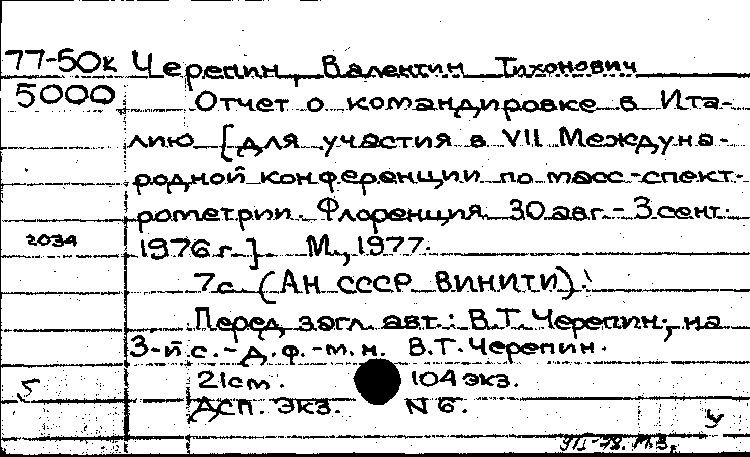 77-50к Черепин, Валентин Тихонович
5000 Отчет о командировке в Ита-
лию [для участия в VII Междуна-
родной конференции по масс-спект-
рометрии. Флоренция. 30 авг.-3 сент.
2034 1976 г.]. М., 1977.
7с. (АН СССР ВИНИТИ).
Перед загл. авт.: В.Т. Черепин, на
3-й с.-д.ф.-м.н. В.Т. Черепин.
21см. 104 экз.
Дсп. экз. N 6.
5 У